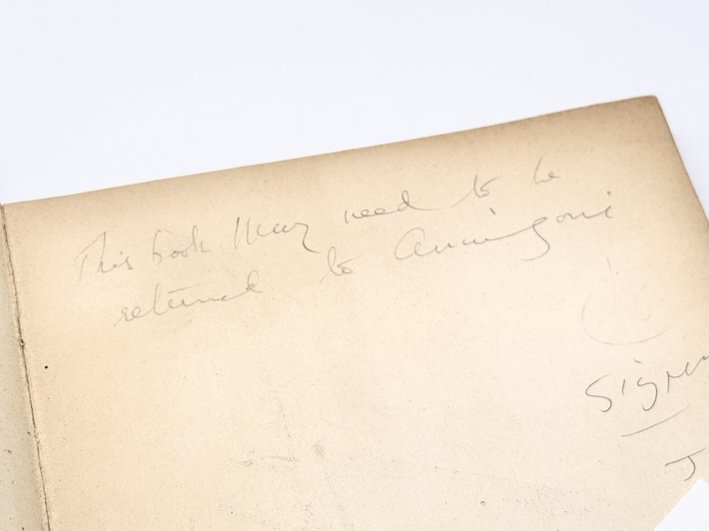 This book May need to be
returned to Annigoni
Sign
J